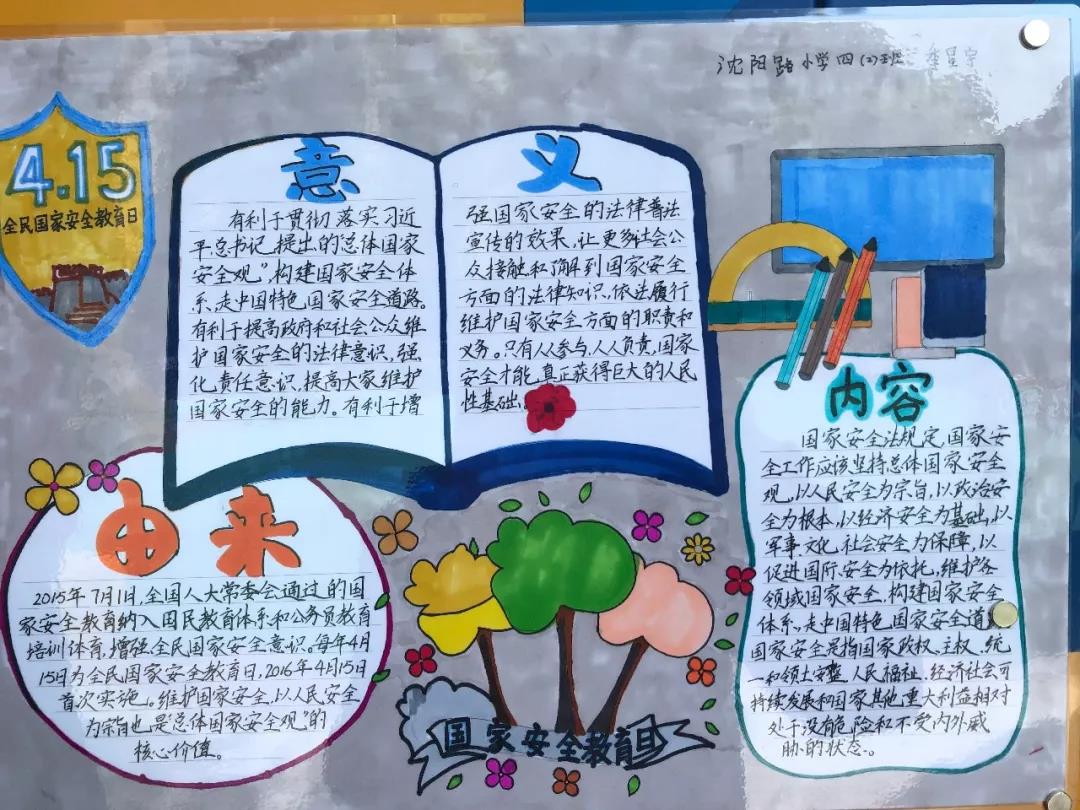 沈阳路小学四(2)班
4.15
全民国家安全教育日
意义
有利于贯彻落实习近
平总书记提出的总体国家
安全观”,构建国家安全体
系、走中国特色国家安全道路。
有利于提高政府和社会公众维
护国家安全的法律意识,强
化责任意识,提高大家维护
国家安全的能力。有利于增
强国家安全的法律普法
宣传的效果,让更多社会公
众接触和了解到国家安全
方面的法律知识,依法履行
维护国家安全方面的职责和
义务。只有人人参与,人人负责,国家
安全才能真正获得巨大的人民
性基础。
由来
2015年7月1日,全国人大常委会通过的国
家安全教育纳入国民教育体系和公务员教育
培训体育,增强全民国家安全意识。每年4月
15日为全民国家安全教育日,2016年4月15日
首次实施。维护国家安全,以人民安全
为宗旨也是“总体国家安全观”的
核心价值。
内容
国家安全法规定,国家安
全工作应该坚持总体国家安全
观,以人民安全为宗旨,以政治安
全为根本,以经济安全为基础,以
军事文化社会安全为保障,以
促进国际安全为依托,维护各
领域国家安全,构建国家安全
体系,走中国特色国家安全道
国家安全是指国家政权、主权、统
一和领土安整、人民福祉、经济社会可
持续发展和国家其他重大利益相对
处于没有危险和不受内外威
胁的状态。
国家安全教育日